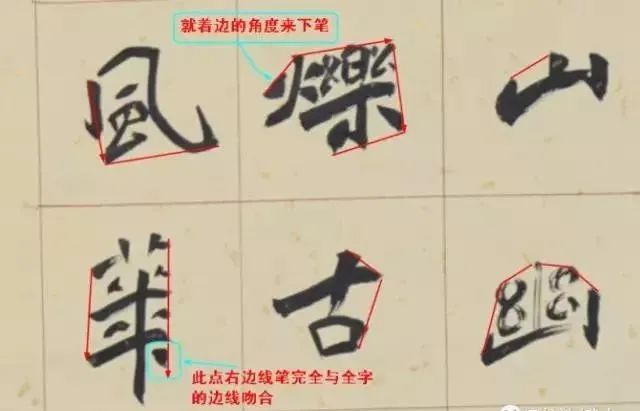 就着边的角度来下笔
風 爍 山
華 古 幽
此点右边线笔完全与全字
的边线吻合